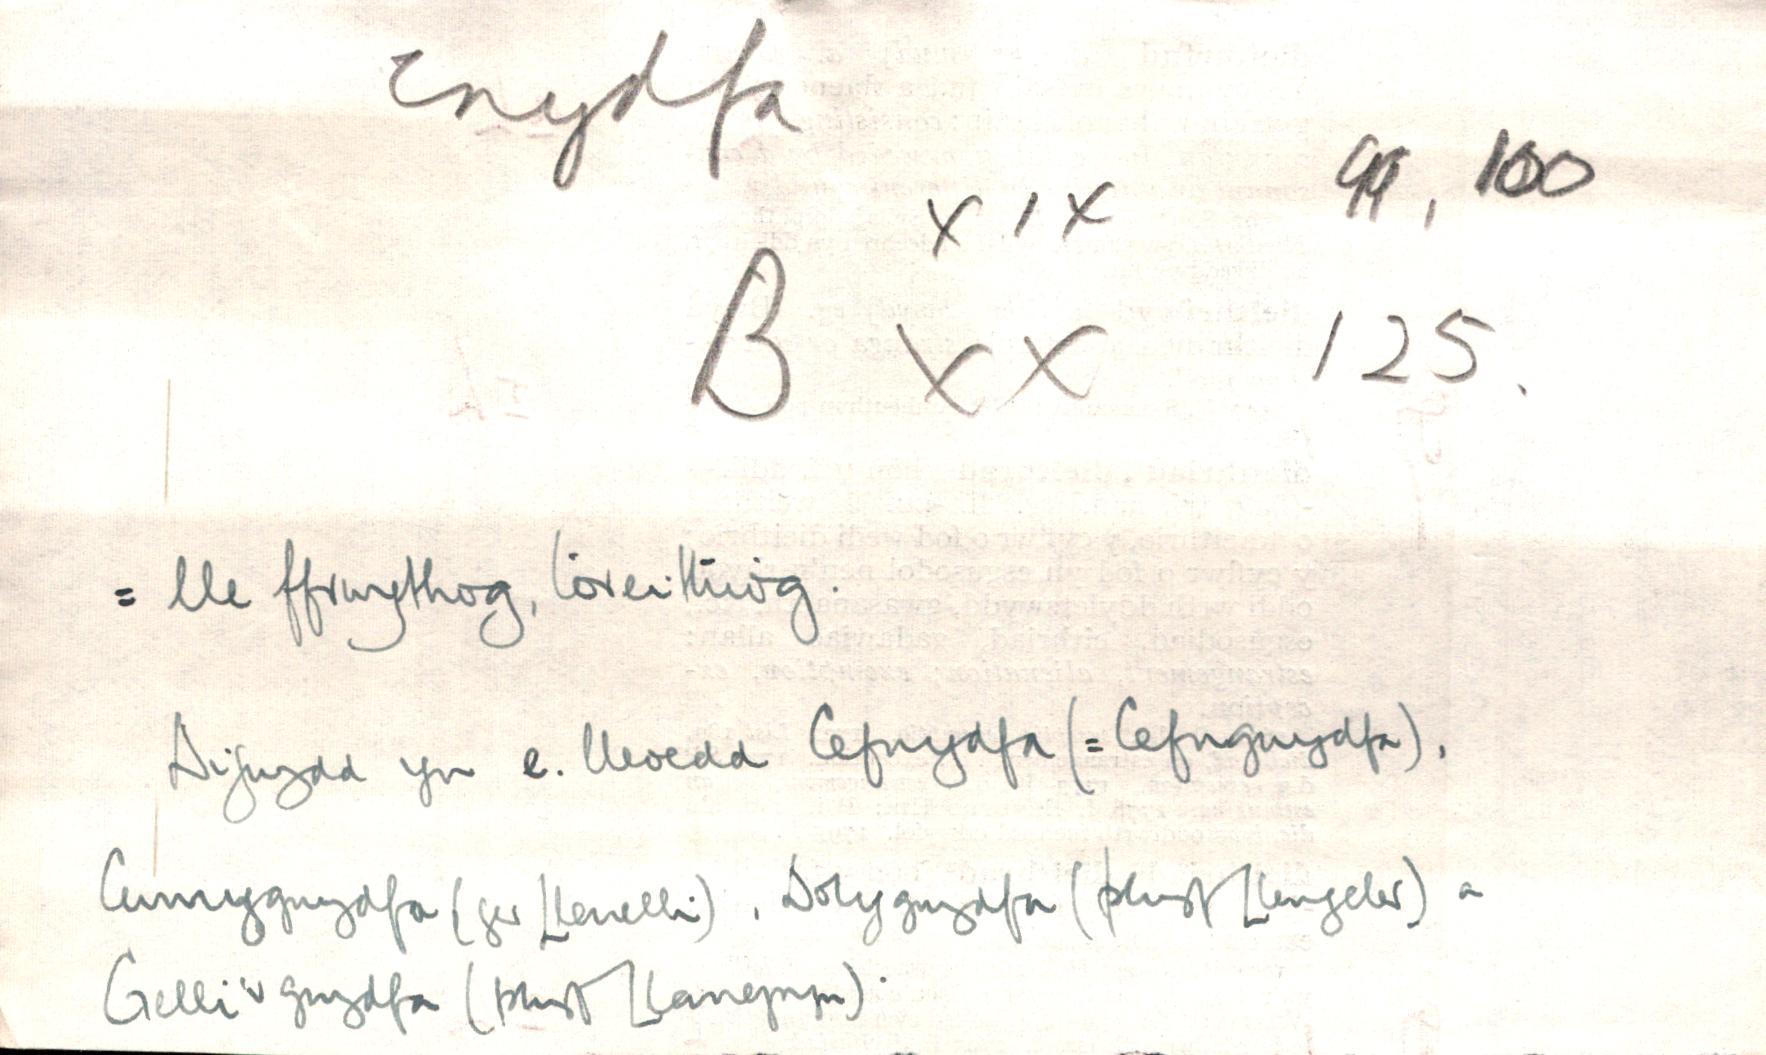 cnydfa
xix 99, 100
B xx 125.
= lle ffrwythog, toreithiog.
Digwydd yn e. lleoedd Cefnydfa (= Cefngnydfa),
Cwmygnydfa (ger Llanelli), Dolygnydfa (plwyf Llangeler) a
Gelli'r gnydfa (plwyf Llanegwn).